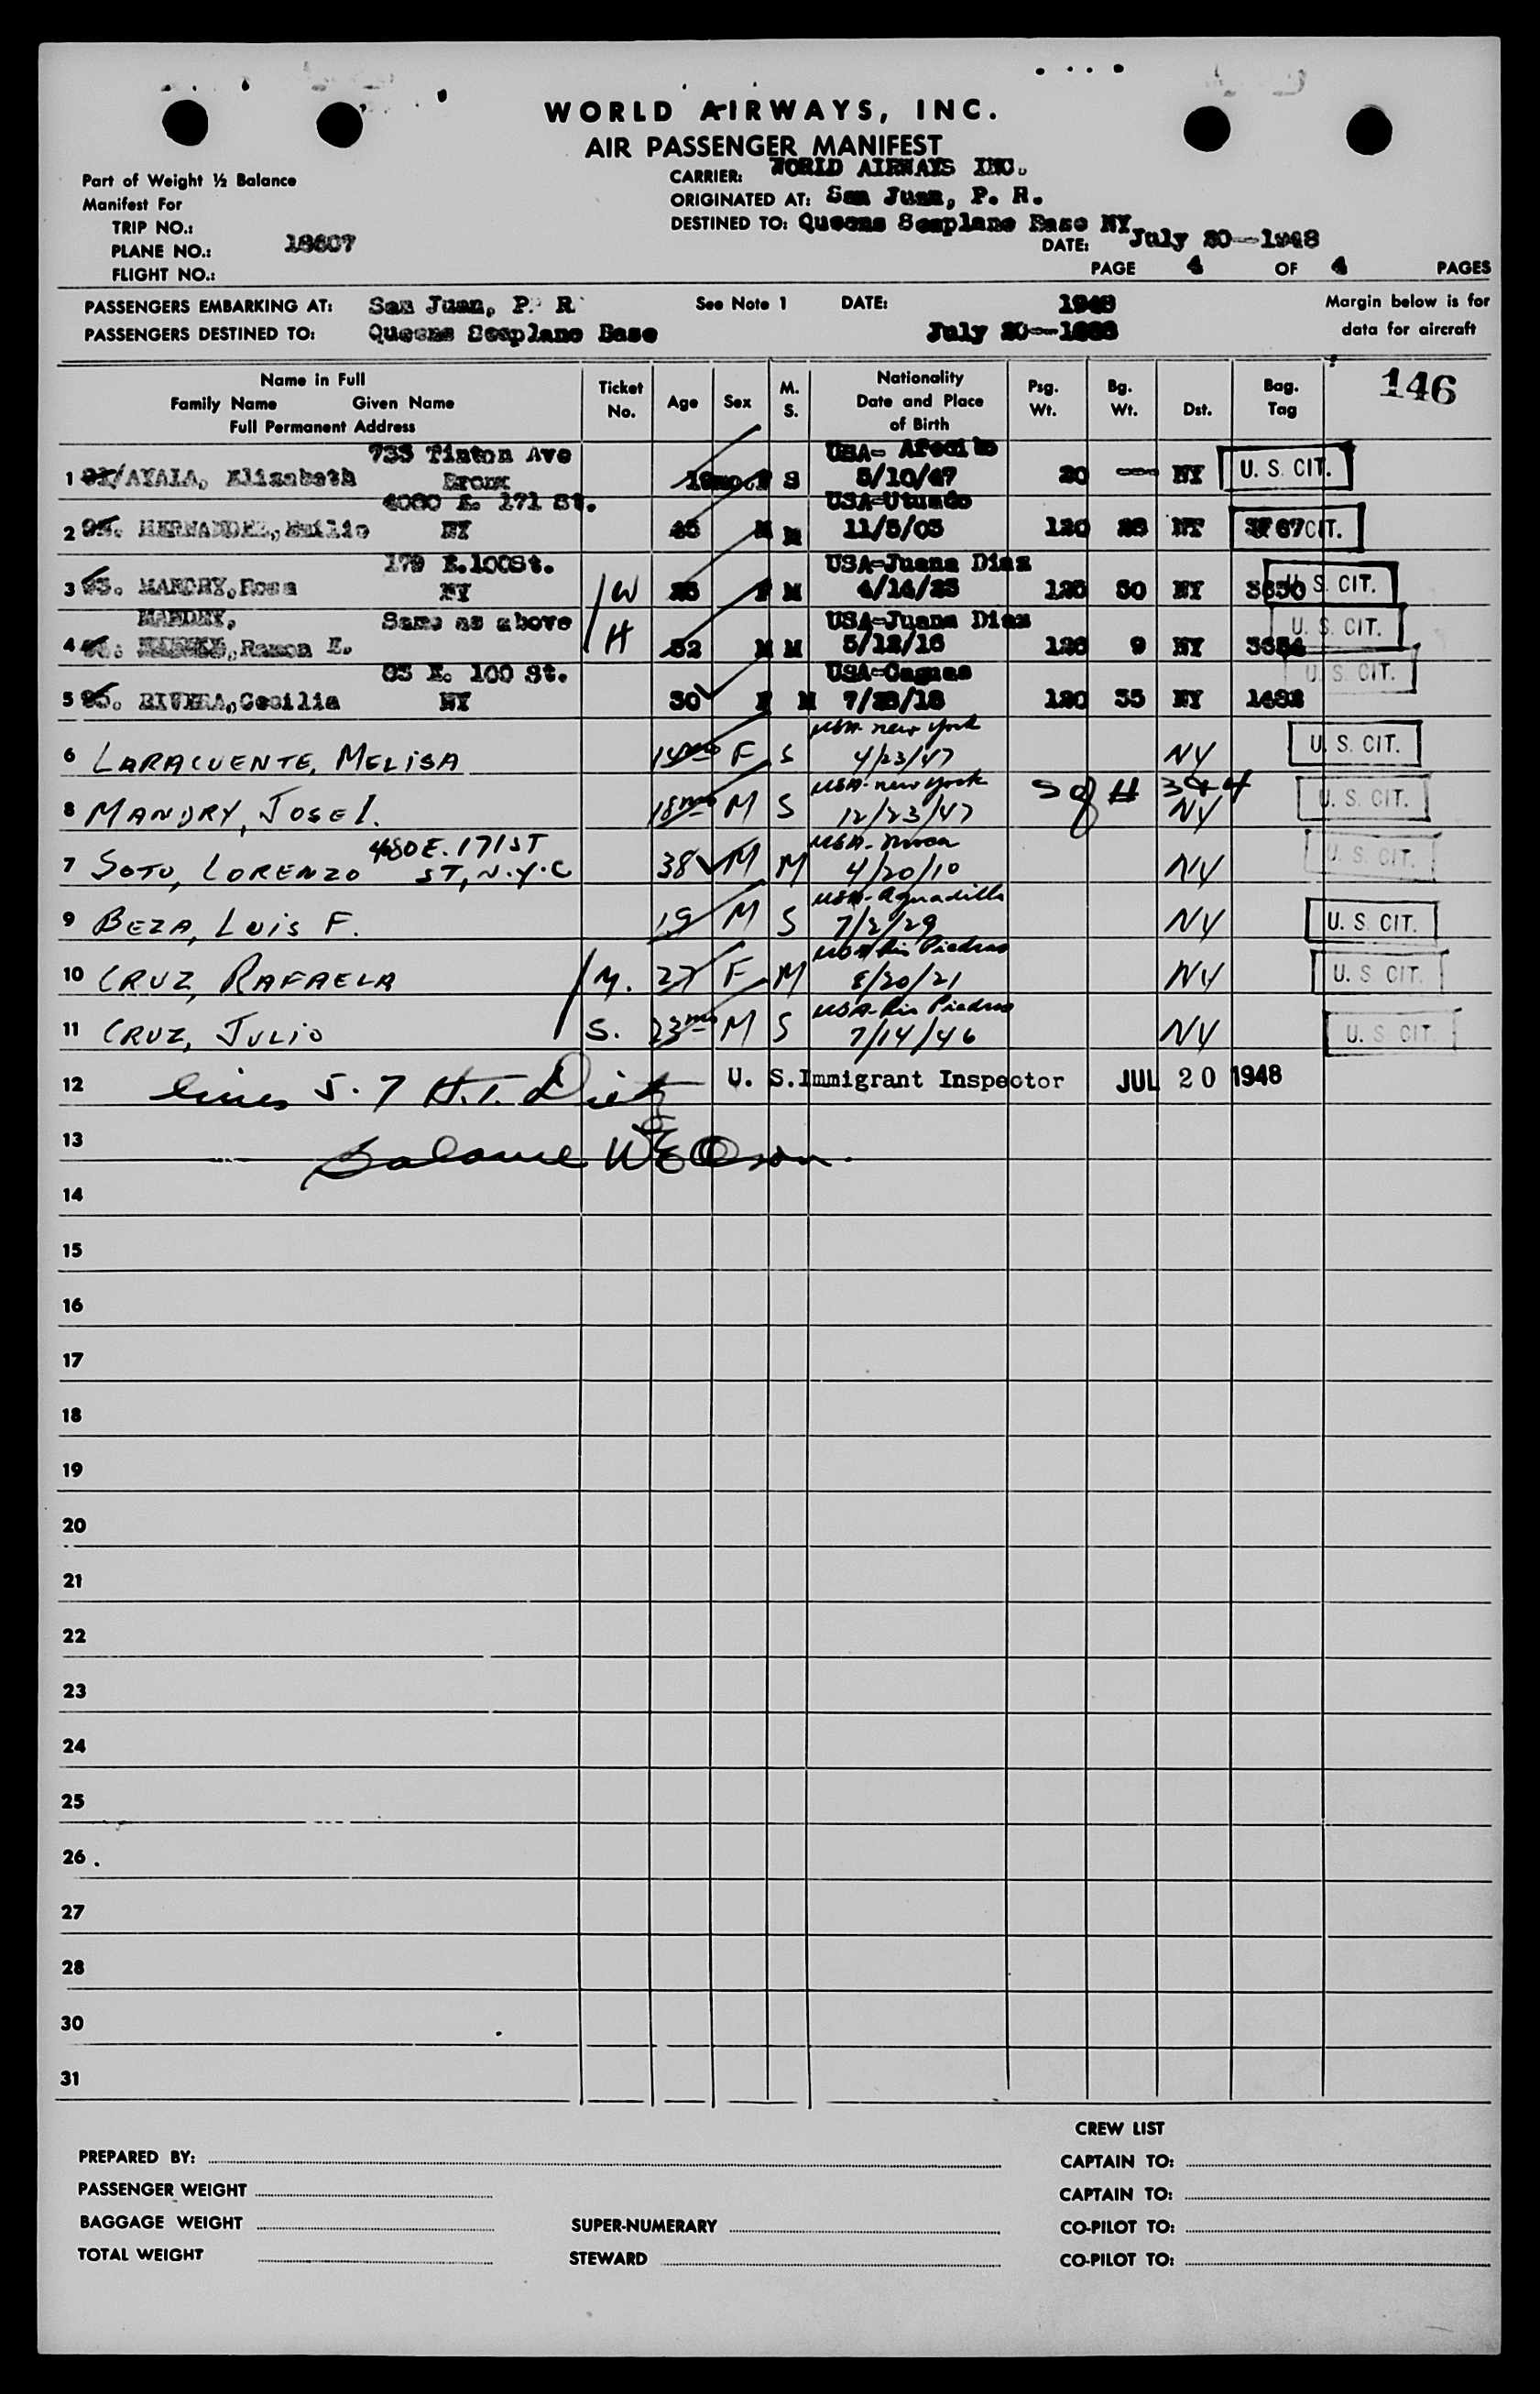 WORLD AIRWAYS, INC.
AIR PASSENGER MANIFEST
Part of Weight ½ Balance
Manifest For
TRIP NO.:
PLANE NO.: 18607
FLIGHT NO.:
CARRIER: WORLD AIRWAYS INC.
ORIGINATED AT: San Juan, P. R.
DESTINED TO: Queens Seaplane Base NY
DATE: July 20-1948
PAGE 4 OF 4 PAGES
PASSENGERS EMBARKING AT: San Juan, P. R See Note 1 DATE: 1948
PASSENGERS DESTINED TO: Queens Seaplane Base July 20-
Margin below is for
data for aircraft
Name in Full
Family Name Given Name
Full Permanent Address
Ticket No.
Age
Sex
M. S.
Nationality
Date and Place
of Birth
Psg. Wt.
Bg. Wt.
Dst.
Bag. Tag
146
735 Tinton Ave USA-
1 AYALA, Elizabeth Bronx F S 5/10/47 20 NY U. S. CIT.
4080 E. 171 St. USA-Utuado
2 HERNANDEZ, Emilio NY M M 11/5/05 120 NY CIT.
179 E.100St. USA-Juana Diaz
3 MANDRY, Rosa NY W F M 4/14/23 50 NY U. S. CIT.
MANDRY, Same as above USA-Juana Diaz
4 Ramon E. H 32 M M 5/12/16 9 NY U. S. CIT.
100 St. USA-Caguas
5 RIVERA, Cecilia NY 30 F M 120 35 NY U. S. CIT.
USA- New York
6 LARACUENTE, MELISA F S 4/23/47 NY U. S. CIT.
USA- New York
8 MANDRY, JOSE I. 18 mo M S 12/23/47 NY U. S. CIT.
480 E. 171 ST
7 SOTO, LORENZO ST, N.Y.C 38 M M 4/20/10 NY U. S. CIT.
USA- Aguadilla
9 BEZA, LUIS F. 19 M S 7/2/29 NY U. S. CIT.
USA Rio Piedras
10 CRUZ, RAFAELA M. 27 F M 8/20/21 NY U. S. CIT.
USA- Rio Piedras
11 CRUZ, JULIO S. 23 mo M S 7/14/46 NY U. S. CIT.
12 Lines 5. 7 H.T. U. S. Immigrant Inspector JUL 20 1948
13 Balance
14
15
16
17
18
19
20
21
22
23
24
25
26
27
28
30
31
CREW LIST
PREPARED BY:
PASSENGER WEIGHT
BAGGAGE WEIGHT
TOTAL WEIGHT
SUPER-NUMERARY
STEWARD
CAPTAIN TO:
CAPTAIN TO:
CO-PILOT TO:
CO-PILOT TO: